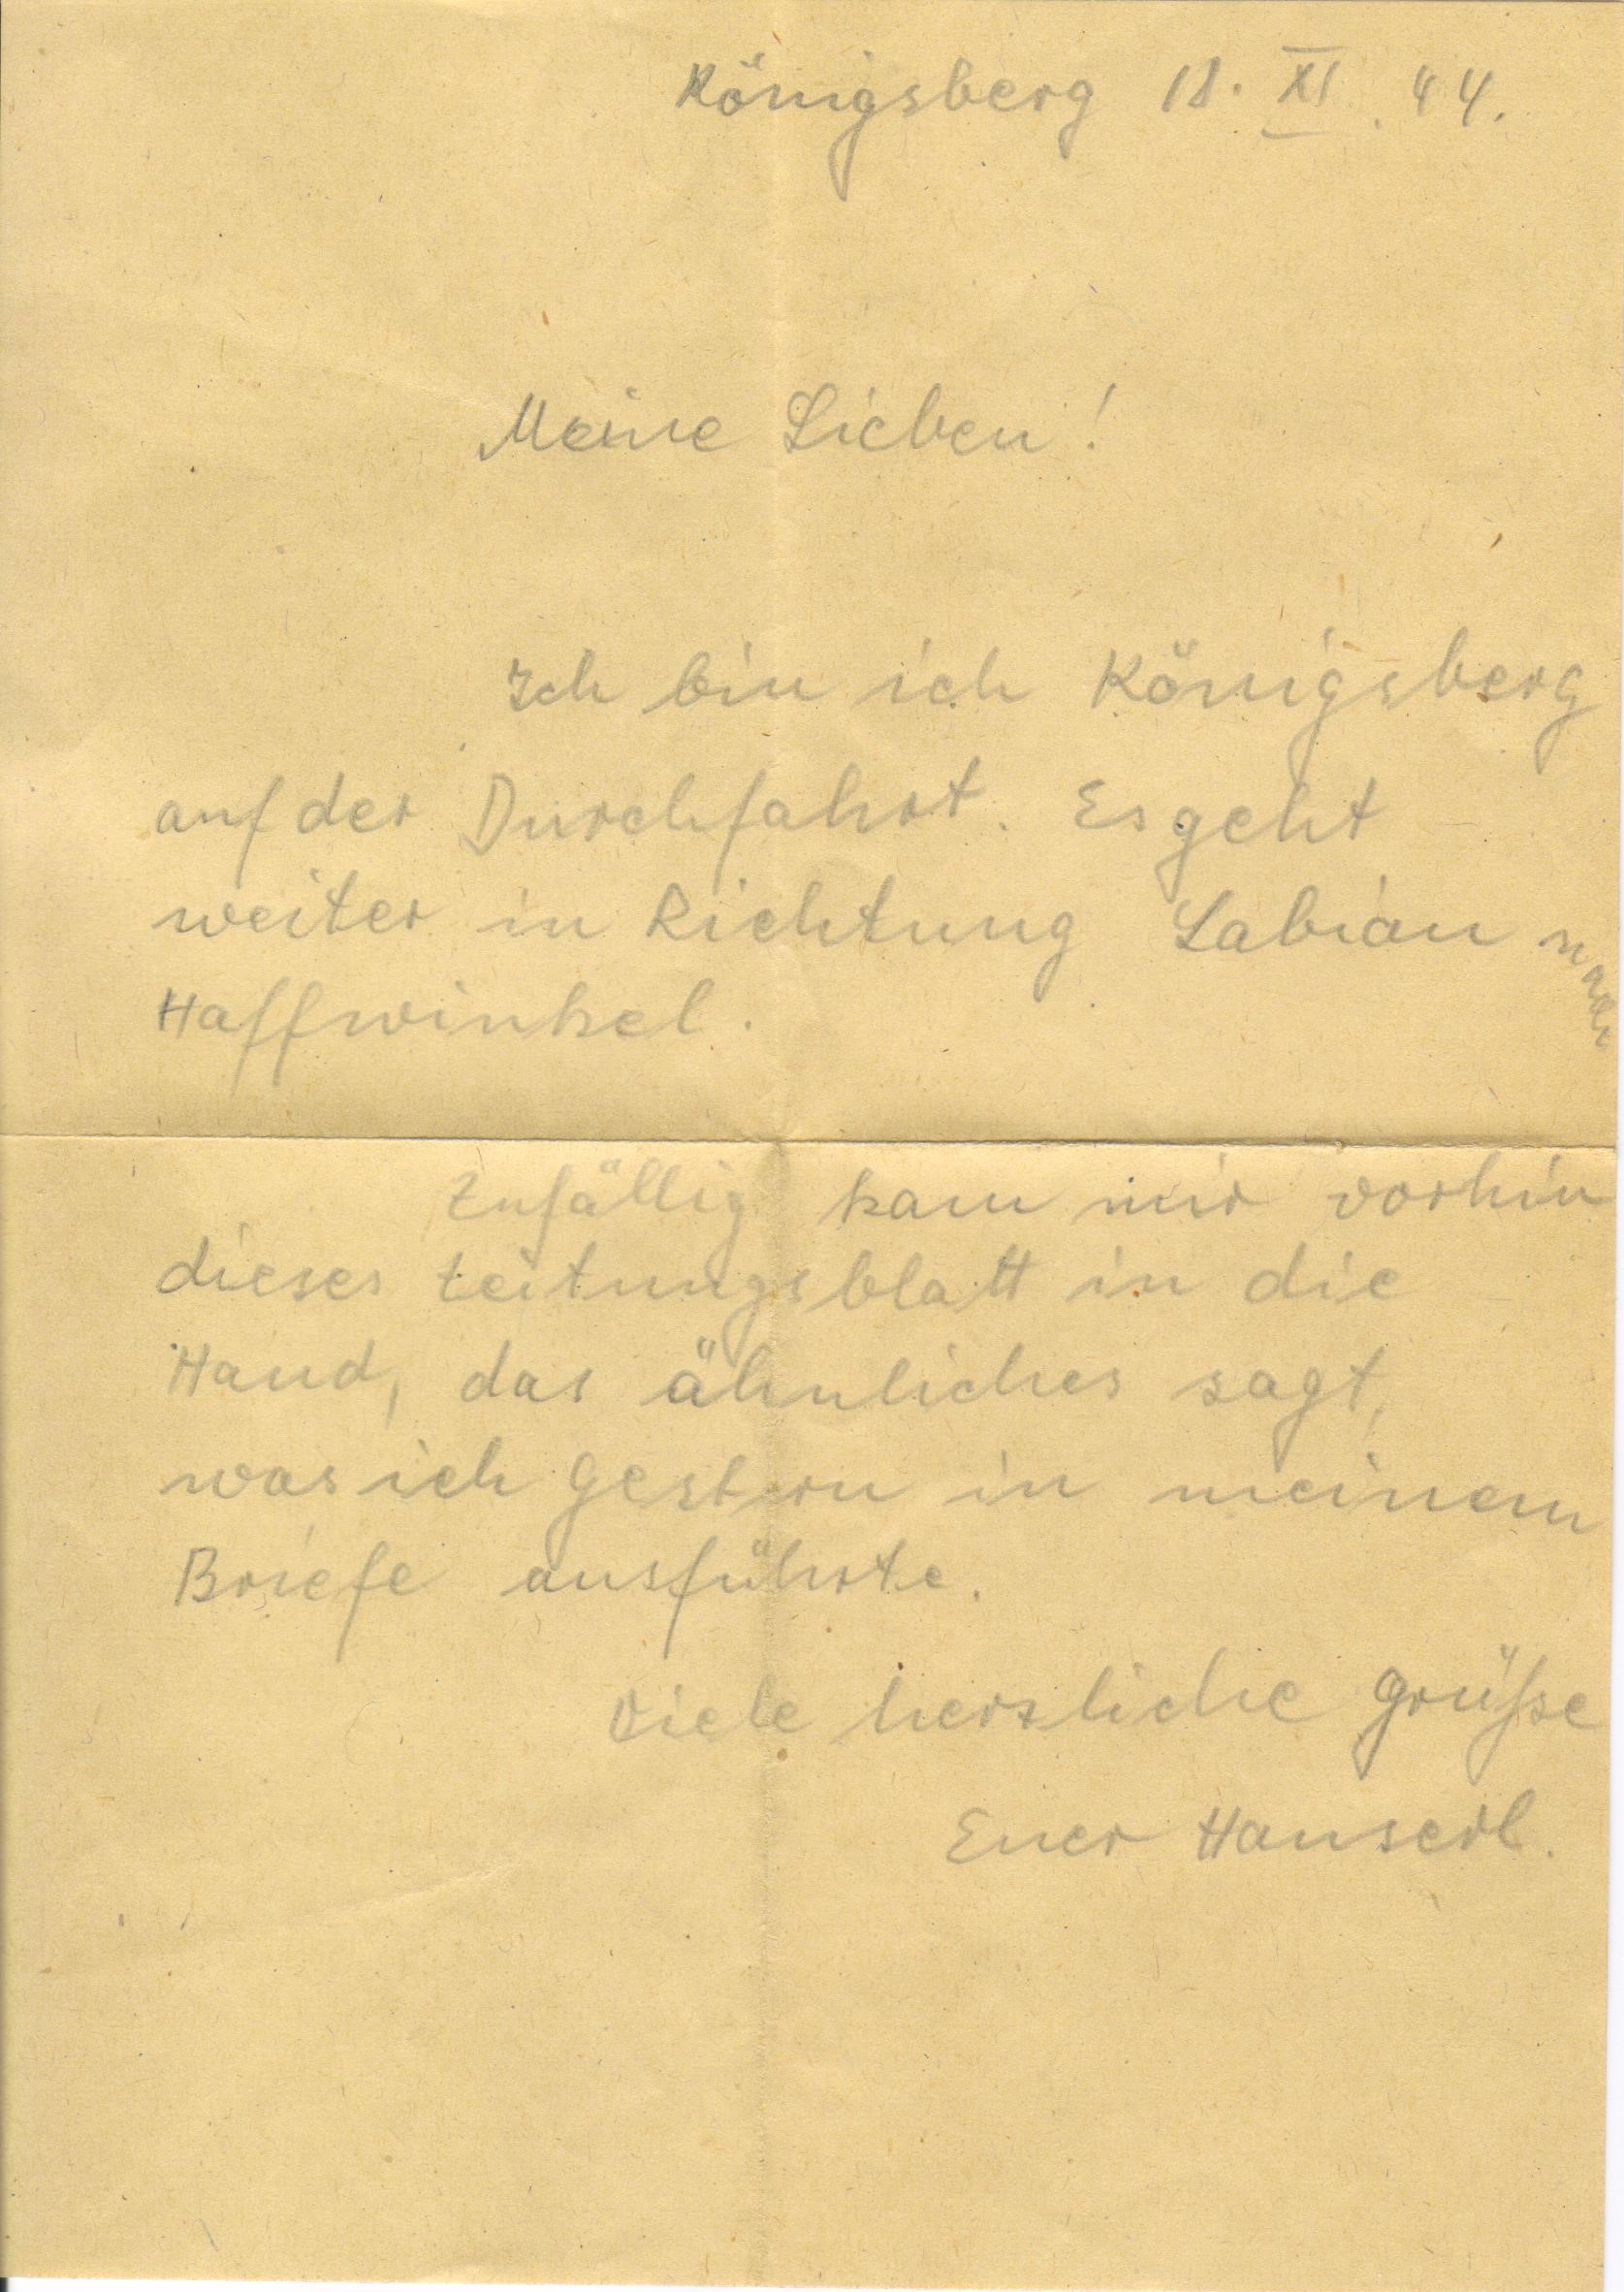 Königsberg 18. XI. 44.
Meine Lieben!
Ich bin ich Königsberg
auf der Durchfahrt. Es geht
weiter in Richtung Labiau nach
Haffwinkel.
Zufällig kam mir vorhin
dieses Zeitungsblatt in die
Hand, das ähnliches sagt,
was ich gestern in meinem
Briefe ausführte.
Viele herzliche Grüße
Euer Hanserl.